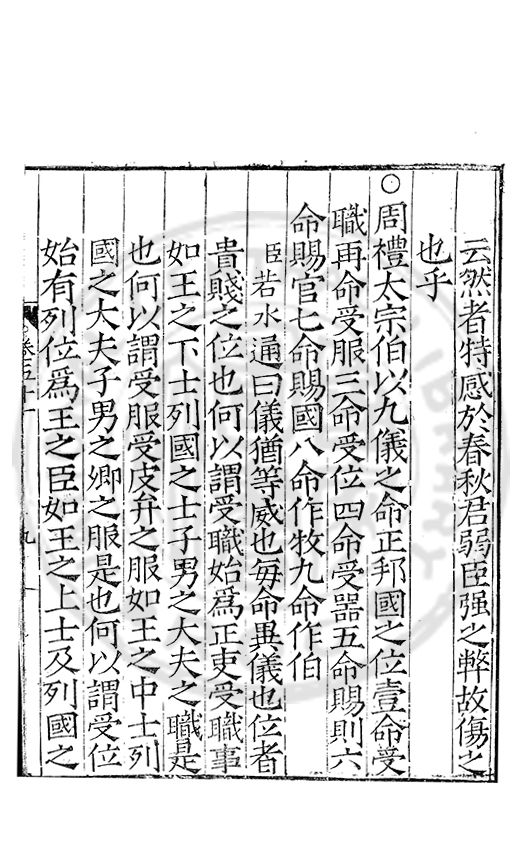 云然者特感於春秋君弱臣强之弊故傷之
也乎
○周禮太宗伯以九儀之命正邦國之位壹命受
職再命受服三命受位四命受噐五命賜則六
命賜官七命賜國八命作牧九命作伯
臣若水通曰儀猶等威也毎命異儀也位者
貴賤之位也何以謂受職始爲正吏受職事
如王之下士列國之士子男之大夫之職是
也何以謂受服受皮弁之服如王之中士列
國之大夫子男之卿之服是也何以謂受位
始有列位爲王之臣如王之上士及列國之
卷五十
九